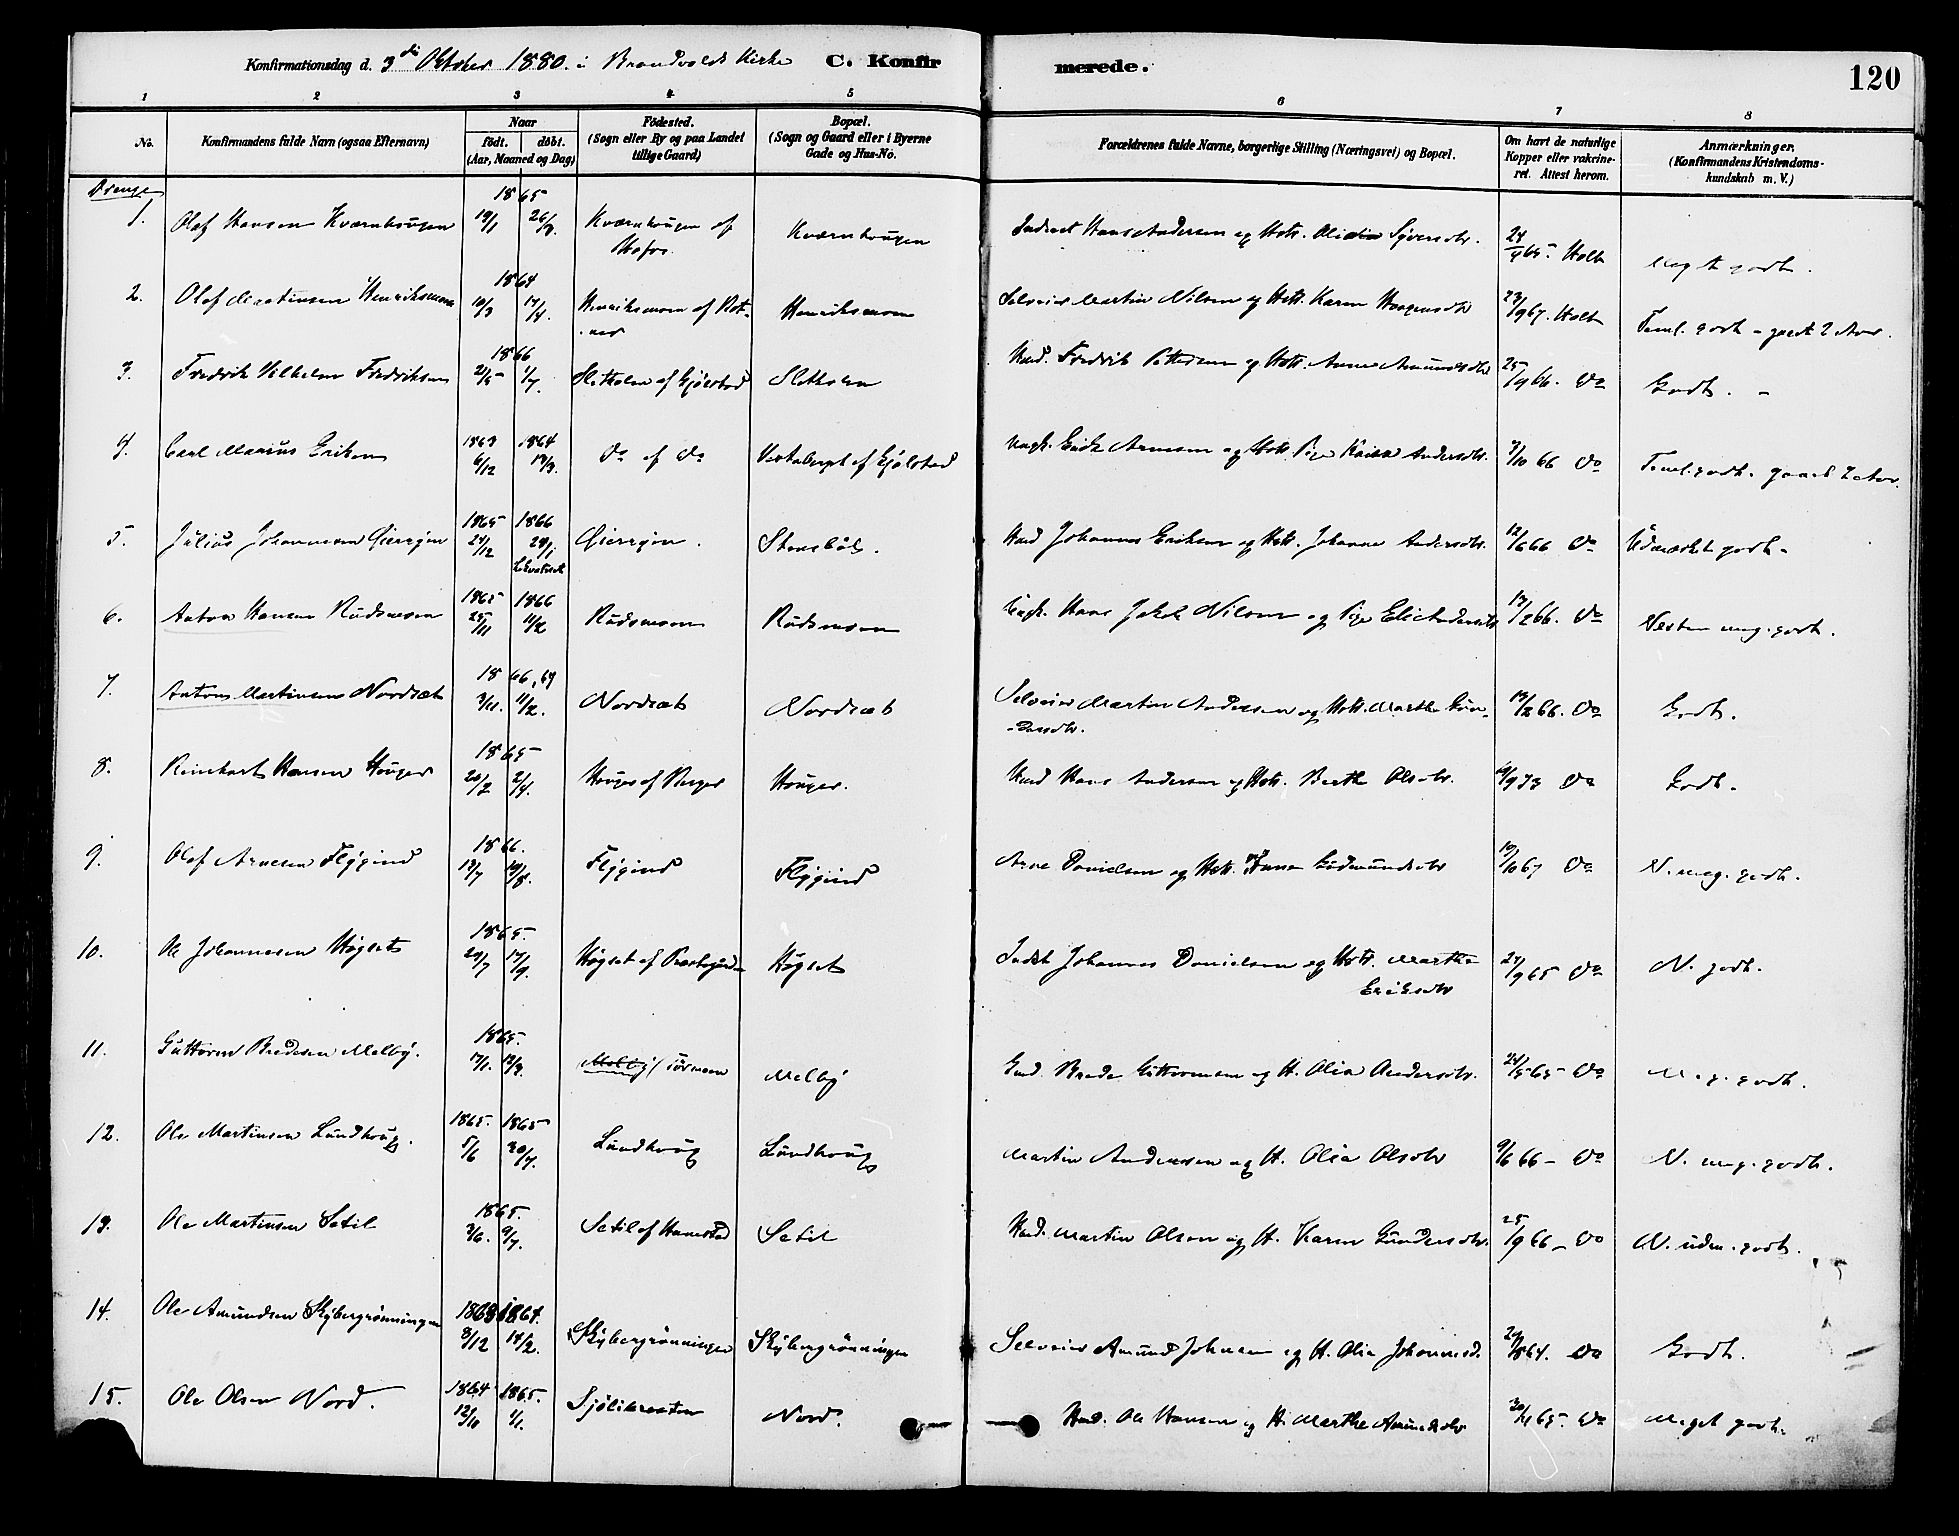 Konfirmationsdag d. 3die Oktober 1880. i Brandvolds Kirke C. Konfirmerede. 120
1 2 3 4 5 6 7 8
No. Konfirmandens fulde Navn (ogsaa Efternavn) Naar født. døbt. (Aar, Maaned og Dag) Fødested. (Sogn eller By og paa Landet tillige Gaard) Bopæl. (Sogn og Gaard eller i Byerne Gade og Hus-No. Forældrenes fulde Navne, borgerlige Stilling (Næringsvei) og Bopæl. Om havt de naturlige Kopper eller vakcineret. Attest herom. Anmærkninger. (Konfirmandens Kristendomskundskab m. V.)
Drenge 1865
1. Olaf Hansen Kværnhougen 19/1 26/3. Kværnhougen af Hofos. Kværnhougen Inderst Hans Andersen og Hstr. Syversdtr. 24/4 65 Holt Meget godt.
1864
2. Olaf Martinsen Henriksmoen 10/3 17/4. Henriksmoen af Rotner Henriksmoen Selveier Martin Nilsen og Hstr. Karen Haagensdtr 23/9 67. Holt Teml. godt - gaaet 2 Aar.
1866
3. Fredrik Vilhelm Fredriksen 21/5 1/7. Sletholen af Gjølstad Sletholen Husd. Fredrik Pettersen og Hstr. Anne Amundsdtr 25/9 66. Do Godt. -
4. Carl Marius Eriksen 1863 6/12 1864 13/3. Do af Do af Gjølstad Ungk. Erik Arnesen og Pige Andersdtr. 3/10 66 Do Teml. godt. gaaet 2 Aar.
5. Julius Johannesen 1865 24/12 1866 28/1 Stensbøl. Husd Johannes Eriksen og Hstr. Johanne Andersdtr. 12/6 66 Do Udmærket godt.
6. Anton Hansen Rudsmoen 1865 25/11 1866 11/2 Rudsmoen Rudsmoen Ungk. Hans Jakob Nilsen og Pige Eli Andersdtr 17/2 66. Do Næsten meg. godt.
18
7. Anton Martinsen Nordsæt 3/11. 11/2. Nordsæt Nordsæt Selveier Martin Andersen og Hstr. Marthe Gundersdtr. Do Godt.
1865
8. Reinhart Hansen Houger 20/2 2/4. Houger af Berger Houger. Husd Hans Andersen og Hstr. Berthe Olsdtr. Do Godt.
1866.
9. Olaf Arnesen Flygind 13/7 19/8. Flygind Flygind Arne Danielsen og Hstr. Gudmundsdtr 19/10 67 Do N. meg. godt.
1865.
10. Ole Johannesen Høgset 29/7 17/9. Høgset af Præstegaard Høgset Indst Johannes Danielsen og Hstr. Marthe Eriksdtr 27/9 65 Do N. godt.
1865.
11. Guttorm Bredesen Melby. 17/1. 12/3. Melby Melby Gmd. Brede Guttormsen og H. Olia Andersdtr. 24/5 65 Do Meg. godt.
12. Ole Martinsen Lundhoug. 1865. 5/6 1865 30/7. Lundhoug Lundhoug Martin Andersen og H. Olia Olsdtr 9/6 66 - Do N. meg. godt.
1865.
13. Ole Martinsen Setil 3/6. 9/7. Setil af Hamstad Setil Husd. Martin Olsen og H. Karen Gundersdtr. 25/9 66 - Do N. udm. godt.
14. Ole Amundsen Skybergrønningen 1863 8/12 1864. 14/2. Skybergrønningen Skybergrønningen Selveier Amund Johnsen og H. Olia Johannesd. 29/8 64. Do Godt.
15. Ole Olsen Nord. 1864 12/11 1865. 1/1. Nord. Husd. Ole Hansen og H. Marthe Amundsdtr 30/4 65. Do Meget godt.